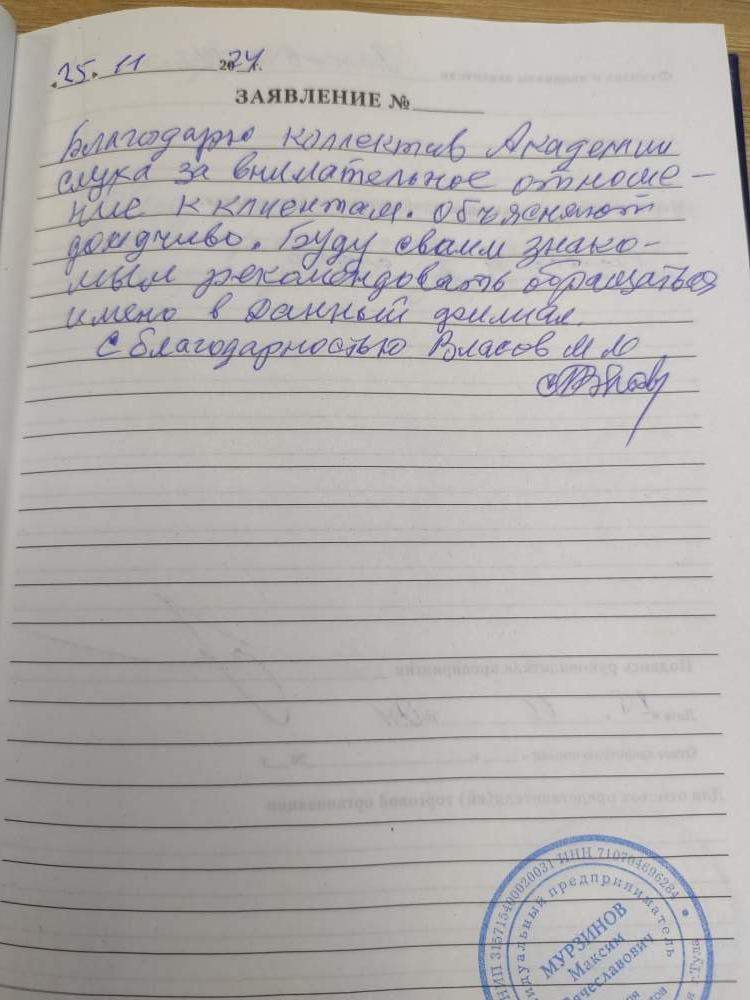 25. 11 2024 г.
ЗАЯВЛЕНИЕ №
Благодарю коллектив Академии
слуха за внимательное отноше-
ние к клиентам. Объясняют
доидчиво. Буду своим знако-
мым рекомендовать обращаться
имено в данный филиал.
С благодарностью Власов М Ю
ИНП 315715400020031 ИНН 710704696284
идуальный предприниматель
МУРЗИНОВ
Максим
ячеславович
г.Тула